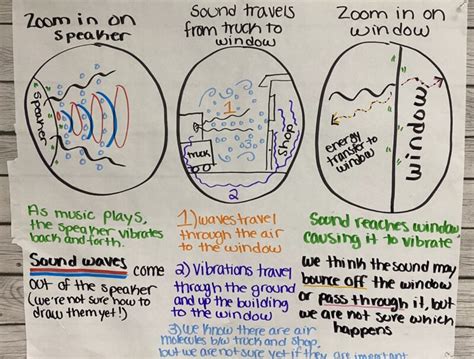 Zoom in on
speaker
speaker
As music plays,
the speaker vibrates
back and forth.
Sound waves come
out of the speaker
(we're not sure how to
draw them yet!)
Sound travels
from truck to
window
1
truck
3
shop
2
1) waves travel
through the air
to the window
2) Vibrations travel
through the ground
and up the building
to the window
3) We know there are air
molecules b/w truck and shop,
but we are not sure yet if they are important
Zoom in on
window
energy
transfer to
window
window
Sound reaches window
causing it to vibrate
we think the sound may
bounce off the window
or pass through it, but
we are not sure which
happens